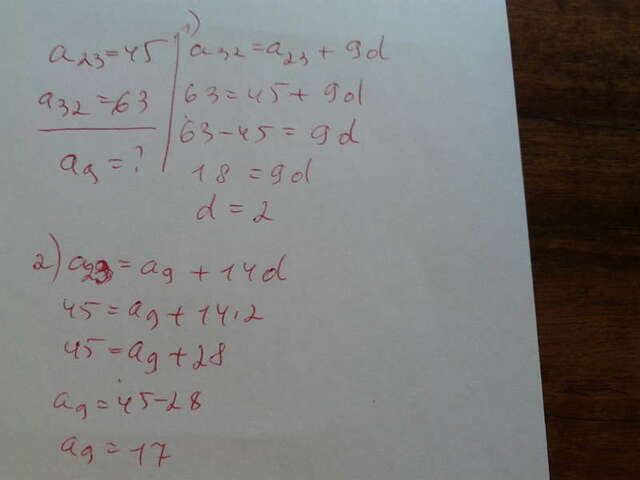 a₂₃=45
a₃₂=63
a₉=?
1)
a₃₂=a₂₃+9d
63=45+9d
63-45=9d
18=9d
d=2
2) a₂₃=a₉+14d
45=a₉+14·2
45=a₉+28
a₉=45-28
a₉=17